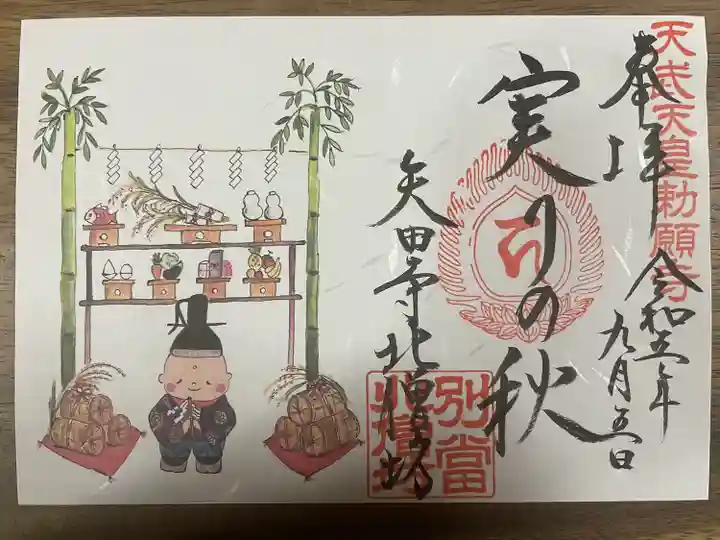 天武天皇勅願寺
奉拝
令和五年
九月五日
実りの秋
矢田寺北僧坊
別當
北僧坊